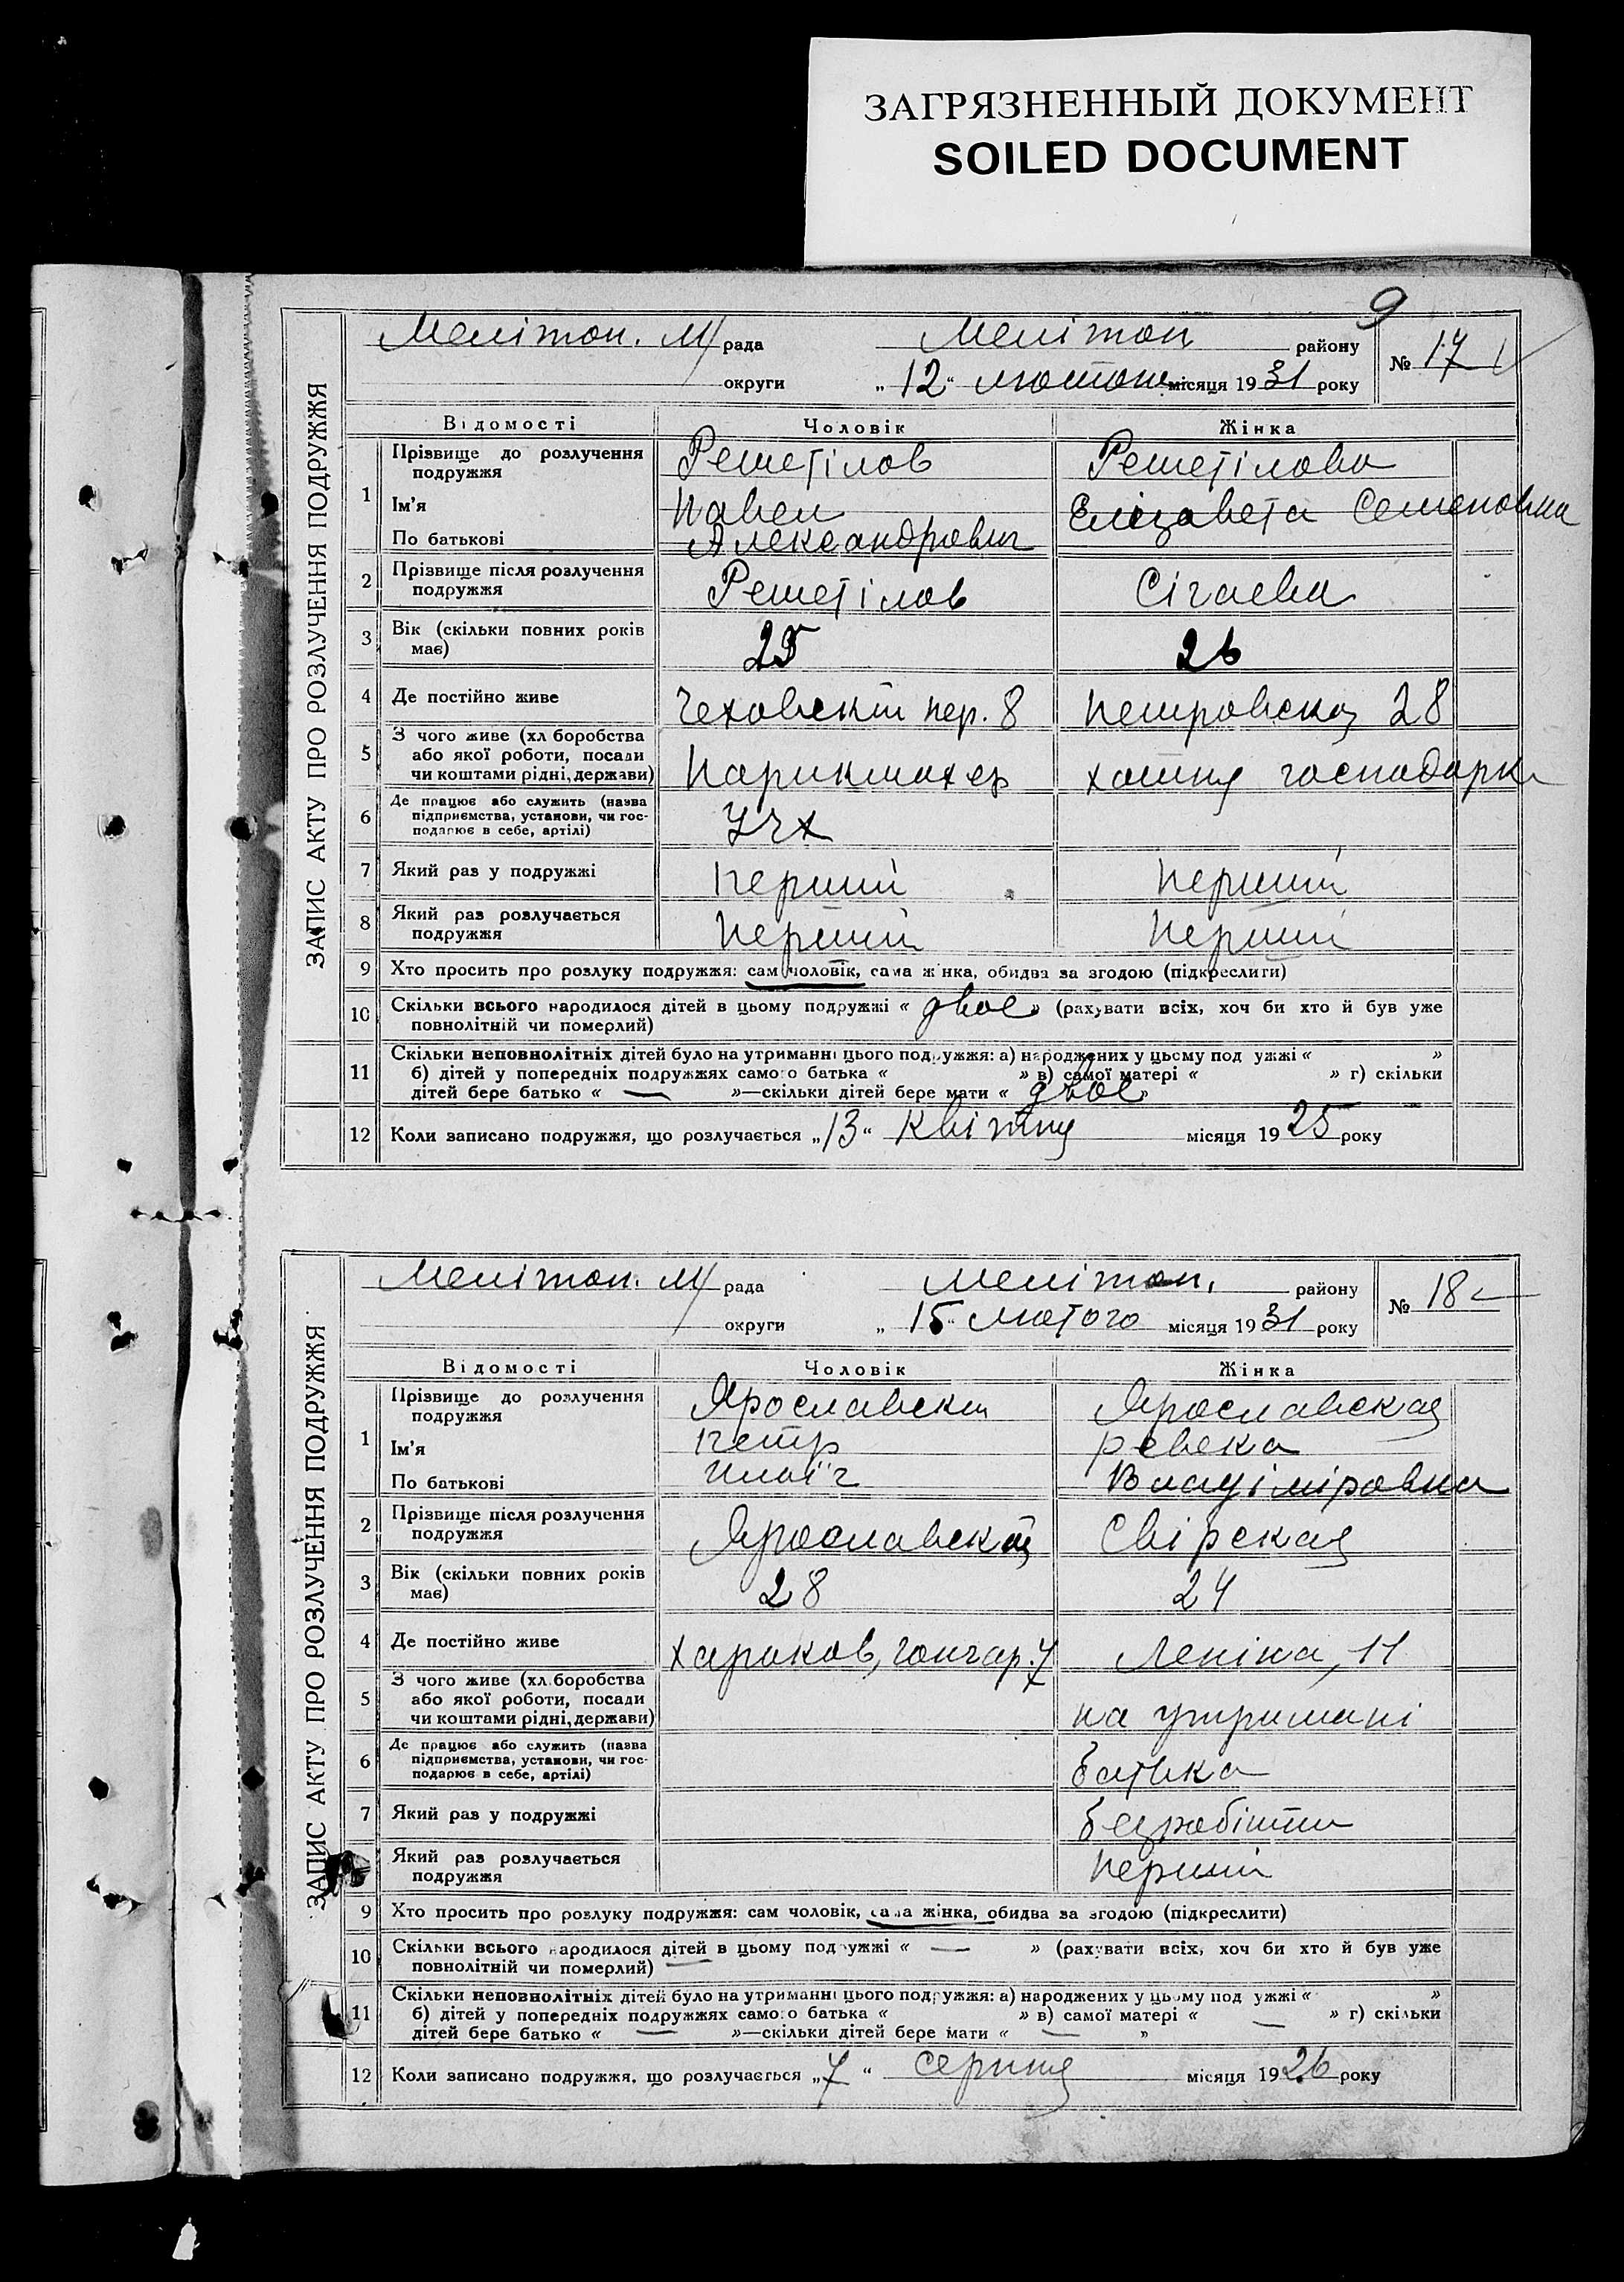 ЗАГРЯЗНЕННЫЙ ДОКУМЕНТ
SOILED DOCUMENT
9
ЗАПИС АКТУ ПРО РОЗЛУЧЕННЯ ПОДРУЖЖЯ
Мелітоп. М/ рада Мелітоп района району № 17
округи „ 12 “ лютого місяця 1931 року
Відомості Чоловік Жінка
1 Прізвище до розлучення Решетілов Решетілова
подружжя
Ім'я Павел Елізавета Семеновна
По батькові Александрович
2 Прізвище після розлучення Решетілов Сігаева
подружжя
3 Вік (скільки повних років 25 26
має)
4 Де постійно живе Чеховскій пер. 8 Петровская 28
5 З чого живе (хл боробства
або якої роботи, посади
чи коштами рідні, держави) Парикмахер хатня господарка
6 Де працює або служить (назва
підприємства, установи, чи гос- УЧХ
подарює в себе, артілі)
7 Який раз у подружжі перший перший
8 Який раз розлучається перший перший
подружжя
9 Хто просить про розлуку подружжя: сам чоловік, сама жінка, обидва за згодою (підкреслити)
10 Скільки всього народилося дітей в цьому подружжі « двоє » (рахувати всіх, хоч би хто й був уже
повнолітній чи померлий)
11 Скільки неповнолітніх дітей було на утриманні цього подружжя: а) народжених у цьому под ужжі « »
б) дітей у попередніх подружжях самого батька « » в) самої матері « » г) скільки
дітей бере батько « — »—скільки дітей бере мати « двоє »
12 Коли записано подружжя, що розлучається „13“ Квітня місяця 1925 року
ЗАПИС АКТУ ПРО РОЗЛУЧЕННЯ ПОДРУЖЖЯ
Мелітоп. М/ рада Мелітоп. району № 18
округи „ 15 “ Лютого місяця 1931 року
Відомості Чоловік Жінка
1 Прізвище до розлучення Ярославскій Ярославская
подружжя
Ім'я Петр Ревека
По батькові Ильїч Владіміровна
2 Прізвище після розлучення Ярославскій Свірская
подружжя
3 Вік (скільки повних років 28 24
має)
4 Де постійно живе Харьков, Гончар. 7 Леніна, 11
5 З чого живе (хл.боробства
або якої роботи, посади на утримані
чи коштами рідні, держави)
6 Де працює або служить (назва
підприємства, установи, чи гос- батька
подарює в себе, артілі)
7 Який раз у подружжі безробітна
Який раз розлучається перший
подружжя
9 Хто просить про розлуку подружжя: сам чоловік, сама жінка, обидва за згодою (підкреслити)
10 Скільки всього народилося дітей в цьому подружжі « — » (рахувати всіх, хоч би хто й був уже
повнолітній чи померлий)
11 Скільки неповнолітніх дітей було на утриманні цього подружжя: а) народжених у цьому под ужжі « »
б) дітей у попередніх подружжях самого батька « » в) самої матері « — » г) скільки
дітей бере батько « — »—скільки дітей бере мати « — »
12 Коли записано подружжя, що розлучається „7“ серпня місяця 1926 року